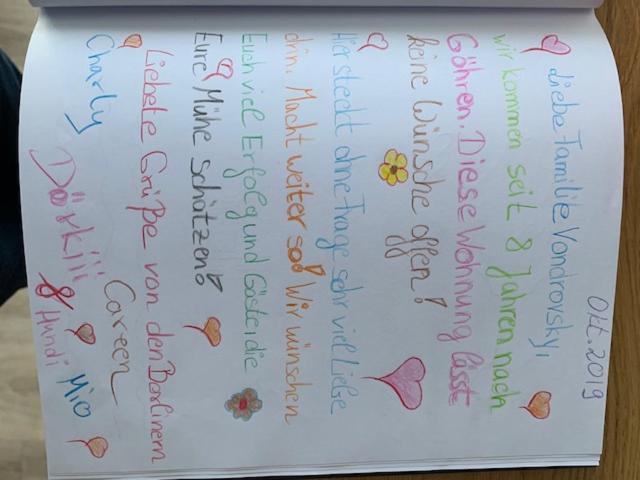 Okt. 2019
Liebe Familie Vondrovsky,
wir kommen seit 8 Jahren nach
Göhren. Diese Wohnung lässt
keine Wünsche offen!
Hier steckt ohne Frage sehr viel Liebe
drin. Macht weiter so! Wir wünschen
Euch viel Erfolg und Gäste, die
Eure Mühe schätzen!
Liebste Grüße von den Berlinern
Charly Careen
Dörkiii & Hundi Mio